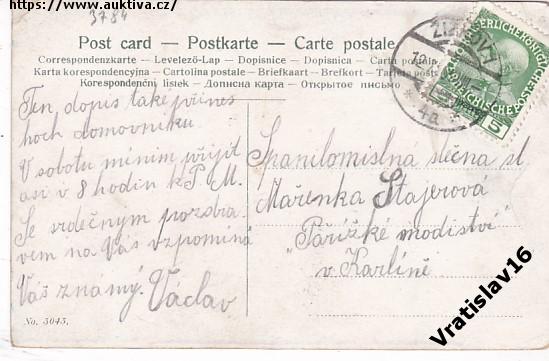 https://www.auktiva.cz/
3784
Post card – Postkarte – Carte postale
Correspondenzkarte – Levelező-Lap – Dopisnice – Dopisnica – Carta postala
Karta korespondencyjna – Cartolina postale – Briefkaart – Brefkort – Tarjeta postal
Korespondenční lístek – Дописна карта – Открытое письмо
4a
5
Ten dopis také přines
hoch domovníku
V sobotu míním přijít
asi v 8 hodin k P. M.
Se srdečným pozdra
vem na Vás vzpomíná
Váš známý. Václav
Spanilomislná slečna sl
Mařenka Štajerová
"Pařížké modiství"
v Karlíně
No. 5045.
Vratislav16